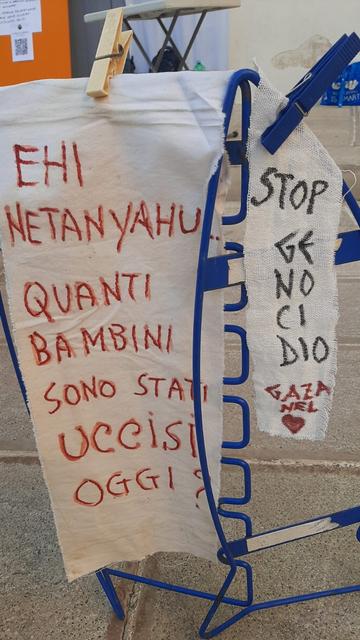 EHI
NETANYAHU..
QUANTI
BAMBINI
SONO STATI
UCCISI
OGGI?
STOP
GE
NO
CI
DIO
GAZA
NEL